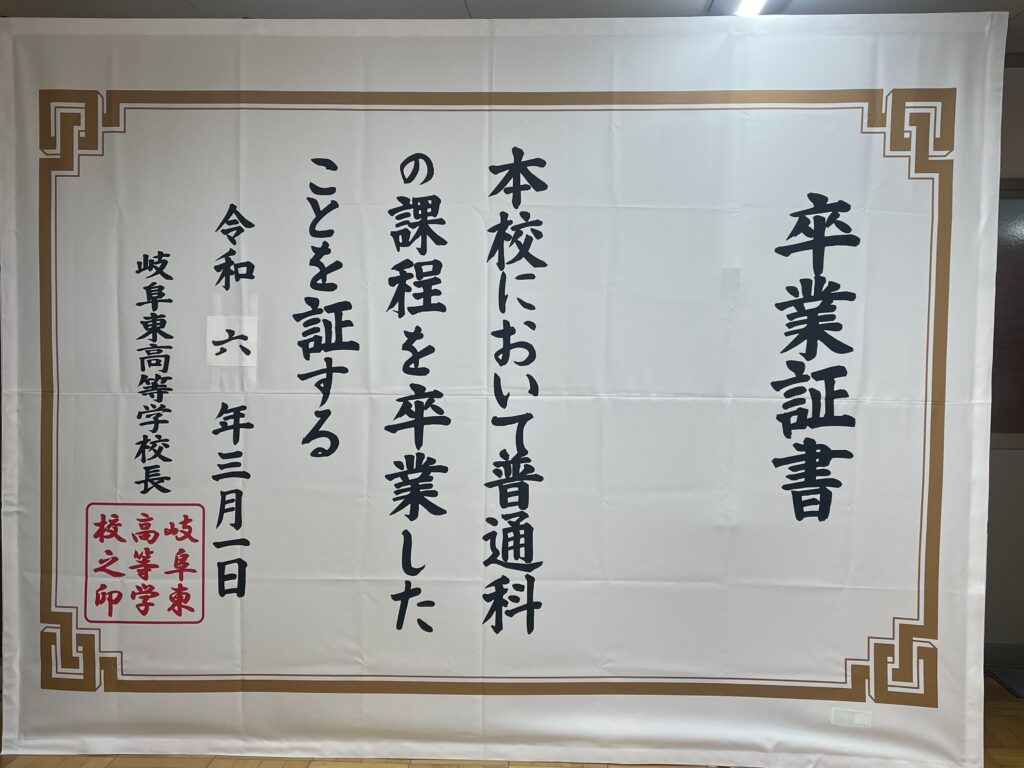 卒業証書
本校において普通科
の課程を卒業した
ことを証する
令和六年三月一日
岐阜東高等学校長
岐阜東
高等学
校之印